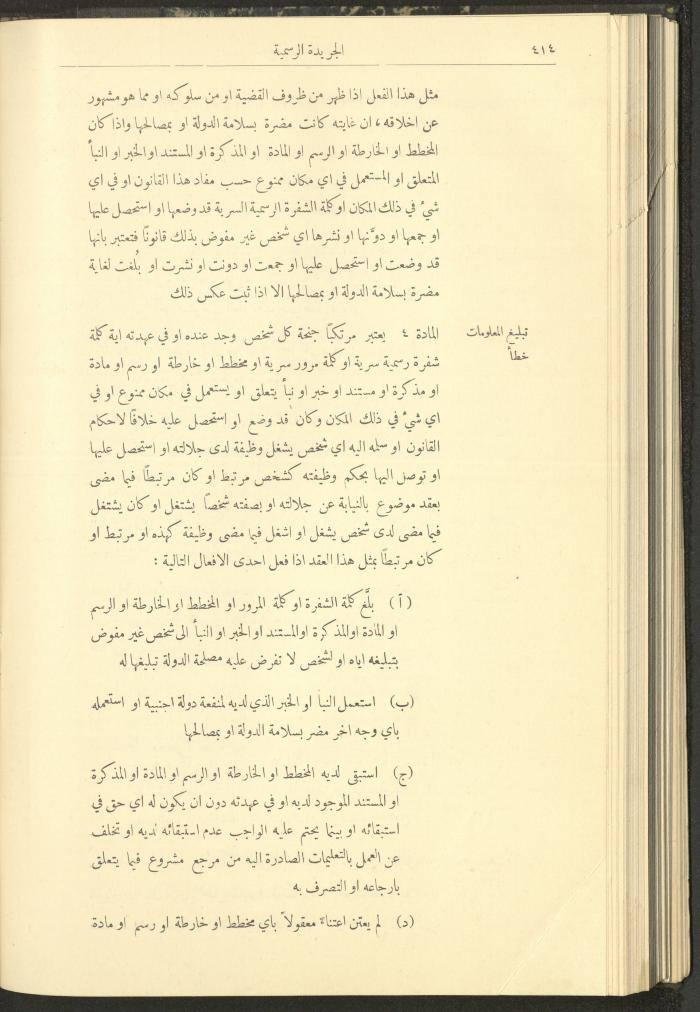 ٤١٤
الجريدة الرسمية
مثل هذا الفعل اذا ظهر من ظروف القضية او من سلوكه او مما هو مشهور
عن اخلاقه، ان غايته كانت مضرة بسلامة الدولة او بمصالحها واذا كان
المخطط او الخارطة او الرسم او المادة او المذكرة او المستند او الخبر او النبأ
المتعلق او المستعمل في اي مكان ممنوع حسب مفاد هذا القانون او في اي
شيء في ذلك المكان او كلمة الشفرة الرسمية السرية قد وضعها او استحصل عليها
او جمعها او دوَّنها او نشرها اي شخص غير مفوض بذلك قانونًا فتعتبر بانها
قد وضعت او استحصل عليها او جمعت او دونت او نشرت او بُلغت لغاية
مضرة بسلامة الدولة او بمصالحها الا اذا ثبت عكس ذلك
تبليغ المعلومات
خطأ
المادة ٤ يعتبر مرتكبًا جنحة كل شخص وجد عنده او في عهدته اية كلمة
شفرة رسمية سرية او كلمة مرور سرية او مخطط او خارطة او رسم او مادة
او مذكرة او مستند او خبر او نبأ يتعلق او يستعمل في مكان ممنوع او في
اي شيء في ذلك المكان وكان قد وضع او استحصل عليه خلافًا لاحكام
القانون او سلمه اليه اي شخص يشغل وظيفة لدى جلالته او استحصل عليها
او توصل اليها بحكم وظيفته كشخص مرتبط او كان مرتبطًا فيما مضى
بعقد موضوع بالنيابة عن جلالته او بصفته شخصًا يشتغل او كان يشتغل
فيما مضى لدى شخص يشغل او اشغل فيما مضى وظيفة كهذه او مرتبط او
كان مرتبطًا بمثل هذا العقد اذا فعل احدى الافعال التالية :
(آ) بلَّغ كلمة الشفرة او كلمة المرور او المخطط او الخارطة او الرسم
او المادة او المذكرة او المستند او الخبر او النبأ الى شخص غير مفوض
بتبليغه اياه او لشخص لا تفرض عليه مصلحة الدولة تبليغها له
(ب) استعمل النبأ او الخبر الذي لديه لمنفعة دولة اجنبية او استعمله
باي وجه اخر مضر بسلامة الدولة او بمصالحها
(ج) استبقى لديه المخطط او الخارطة او الرسم او المادة او المذكرة
او المستند الموجود لديه او في عهدته دون ان يكون له اي حق في
استبقائه او بينما يحتم عليه الواجب عدم استبقائه لديه او تخلف
عن العمل بالتعليمات الصادرة اليه من مرجع مشروع فيما يتعلق
بارجاعه او التصرف به
(د) لم يعتن اعتناءً معقولاً باي مخطط او خارطة او رسم او مادة